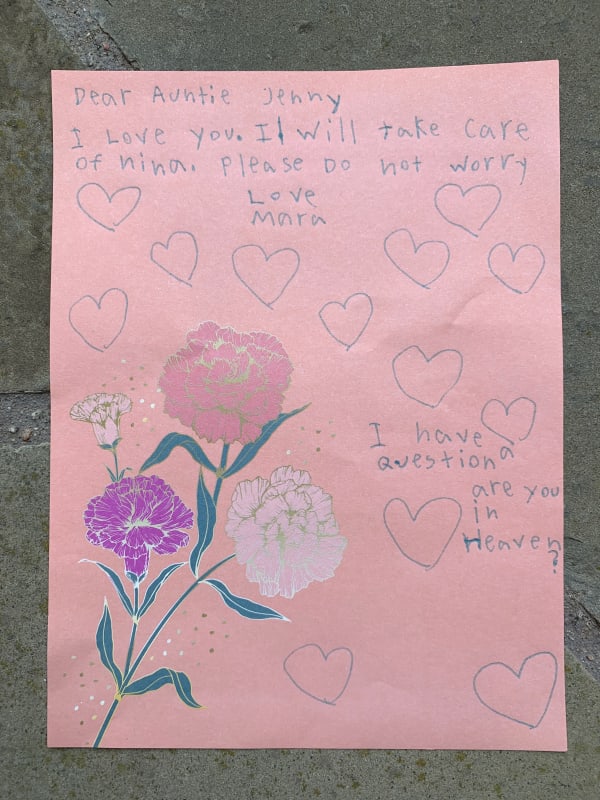 Dear Auntie Jenny
I Love you. I will take care
of nina. Please Do not worry
Love
Mara
I have a
question
are you
in
Heaven
?